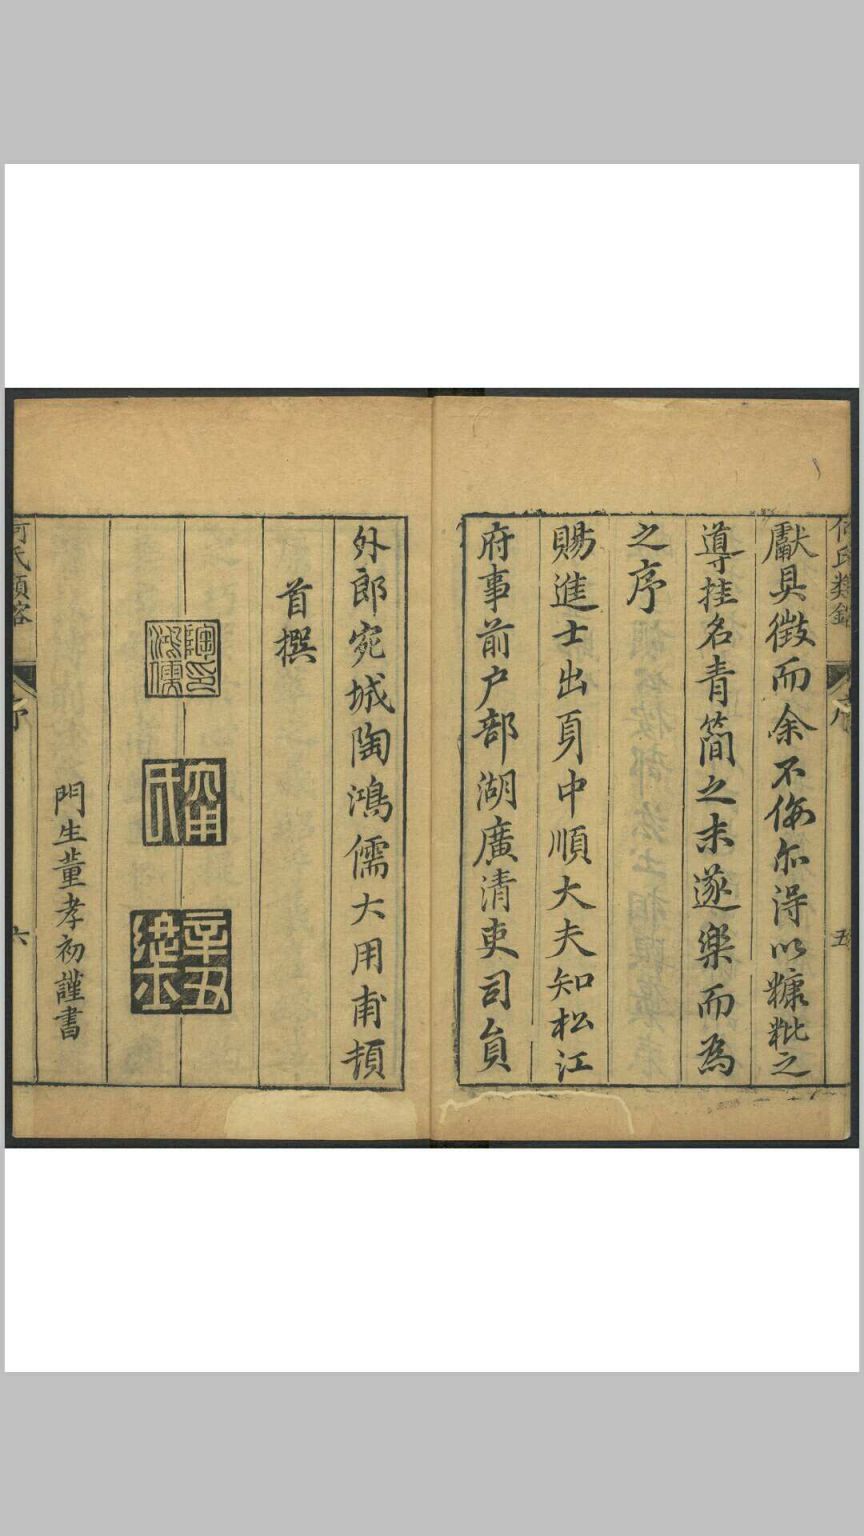 何氏類鎔
序
五
獻具徵而余不侮尓得以糠粃之
導挂名青簡之末遂樂而為
之序
賜進士出身中順大夫知松江
府事前户部湖廣清吏司員
外郎宛城陶鴻儒大用甫頓
首撰
陶印鴻儒
大用氏
辛丑進士
門生董孝初謹書
何氏類鎔
序
六